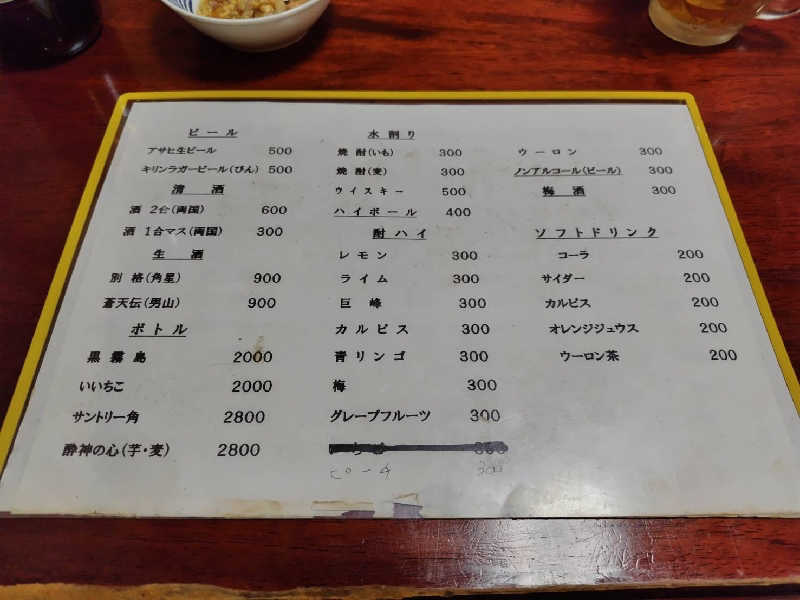 ビール
アサヒ生ビール 500
キリンラガービール(びん) 500
清 酒
酒 2合(両国) 600
酒 1合マス(両国) 300
生 酒
別 格(角星) 900
蒼天伝(男山) 900
ボトル
黒 霧 島 2000
いいちこ 2000
サントリー角 2800
酔神の心(芋・麦) 2800
水 割 り
焼 酎(いも) 300
焼 酎(麦) 300
ウイスキー 500
ハイボール 400
酎 ハ イ
レ モ ン 300
ラ イ ム 300
巨 峰 300
カ ル ピ ス 300
青 リ ン ゴ 300
梅 300
グレープフルーツ 300
300
ピーチ 300
ウ ー ロ ン 300
ノンアルコール(ビール) 300
梅 酒 300
ソ フ ト ド リ ン ク
コーラ 200
サイダー 200
カルピス 200
オレンジジュウス 200
ウーロン茶 200